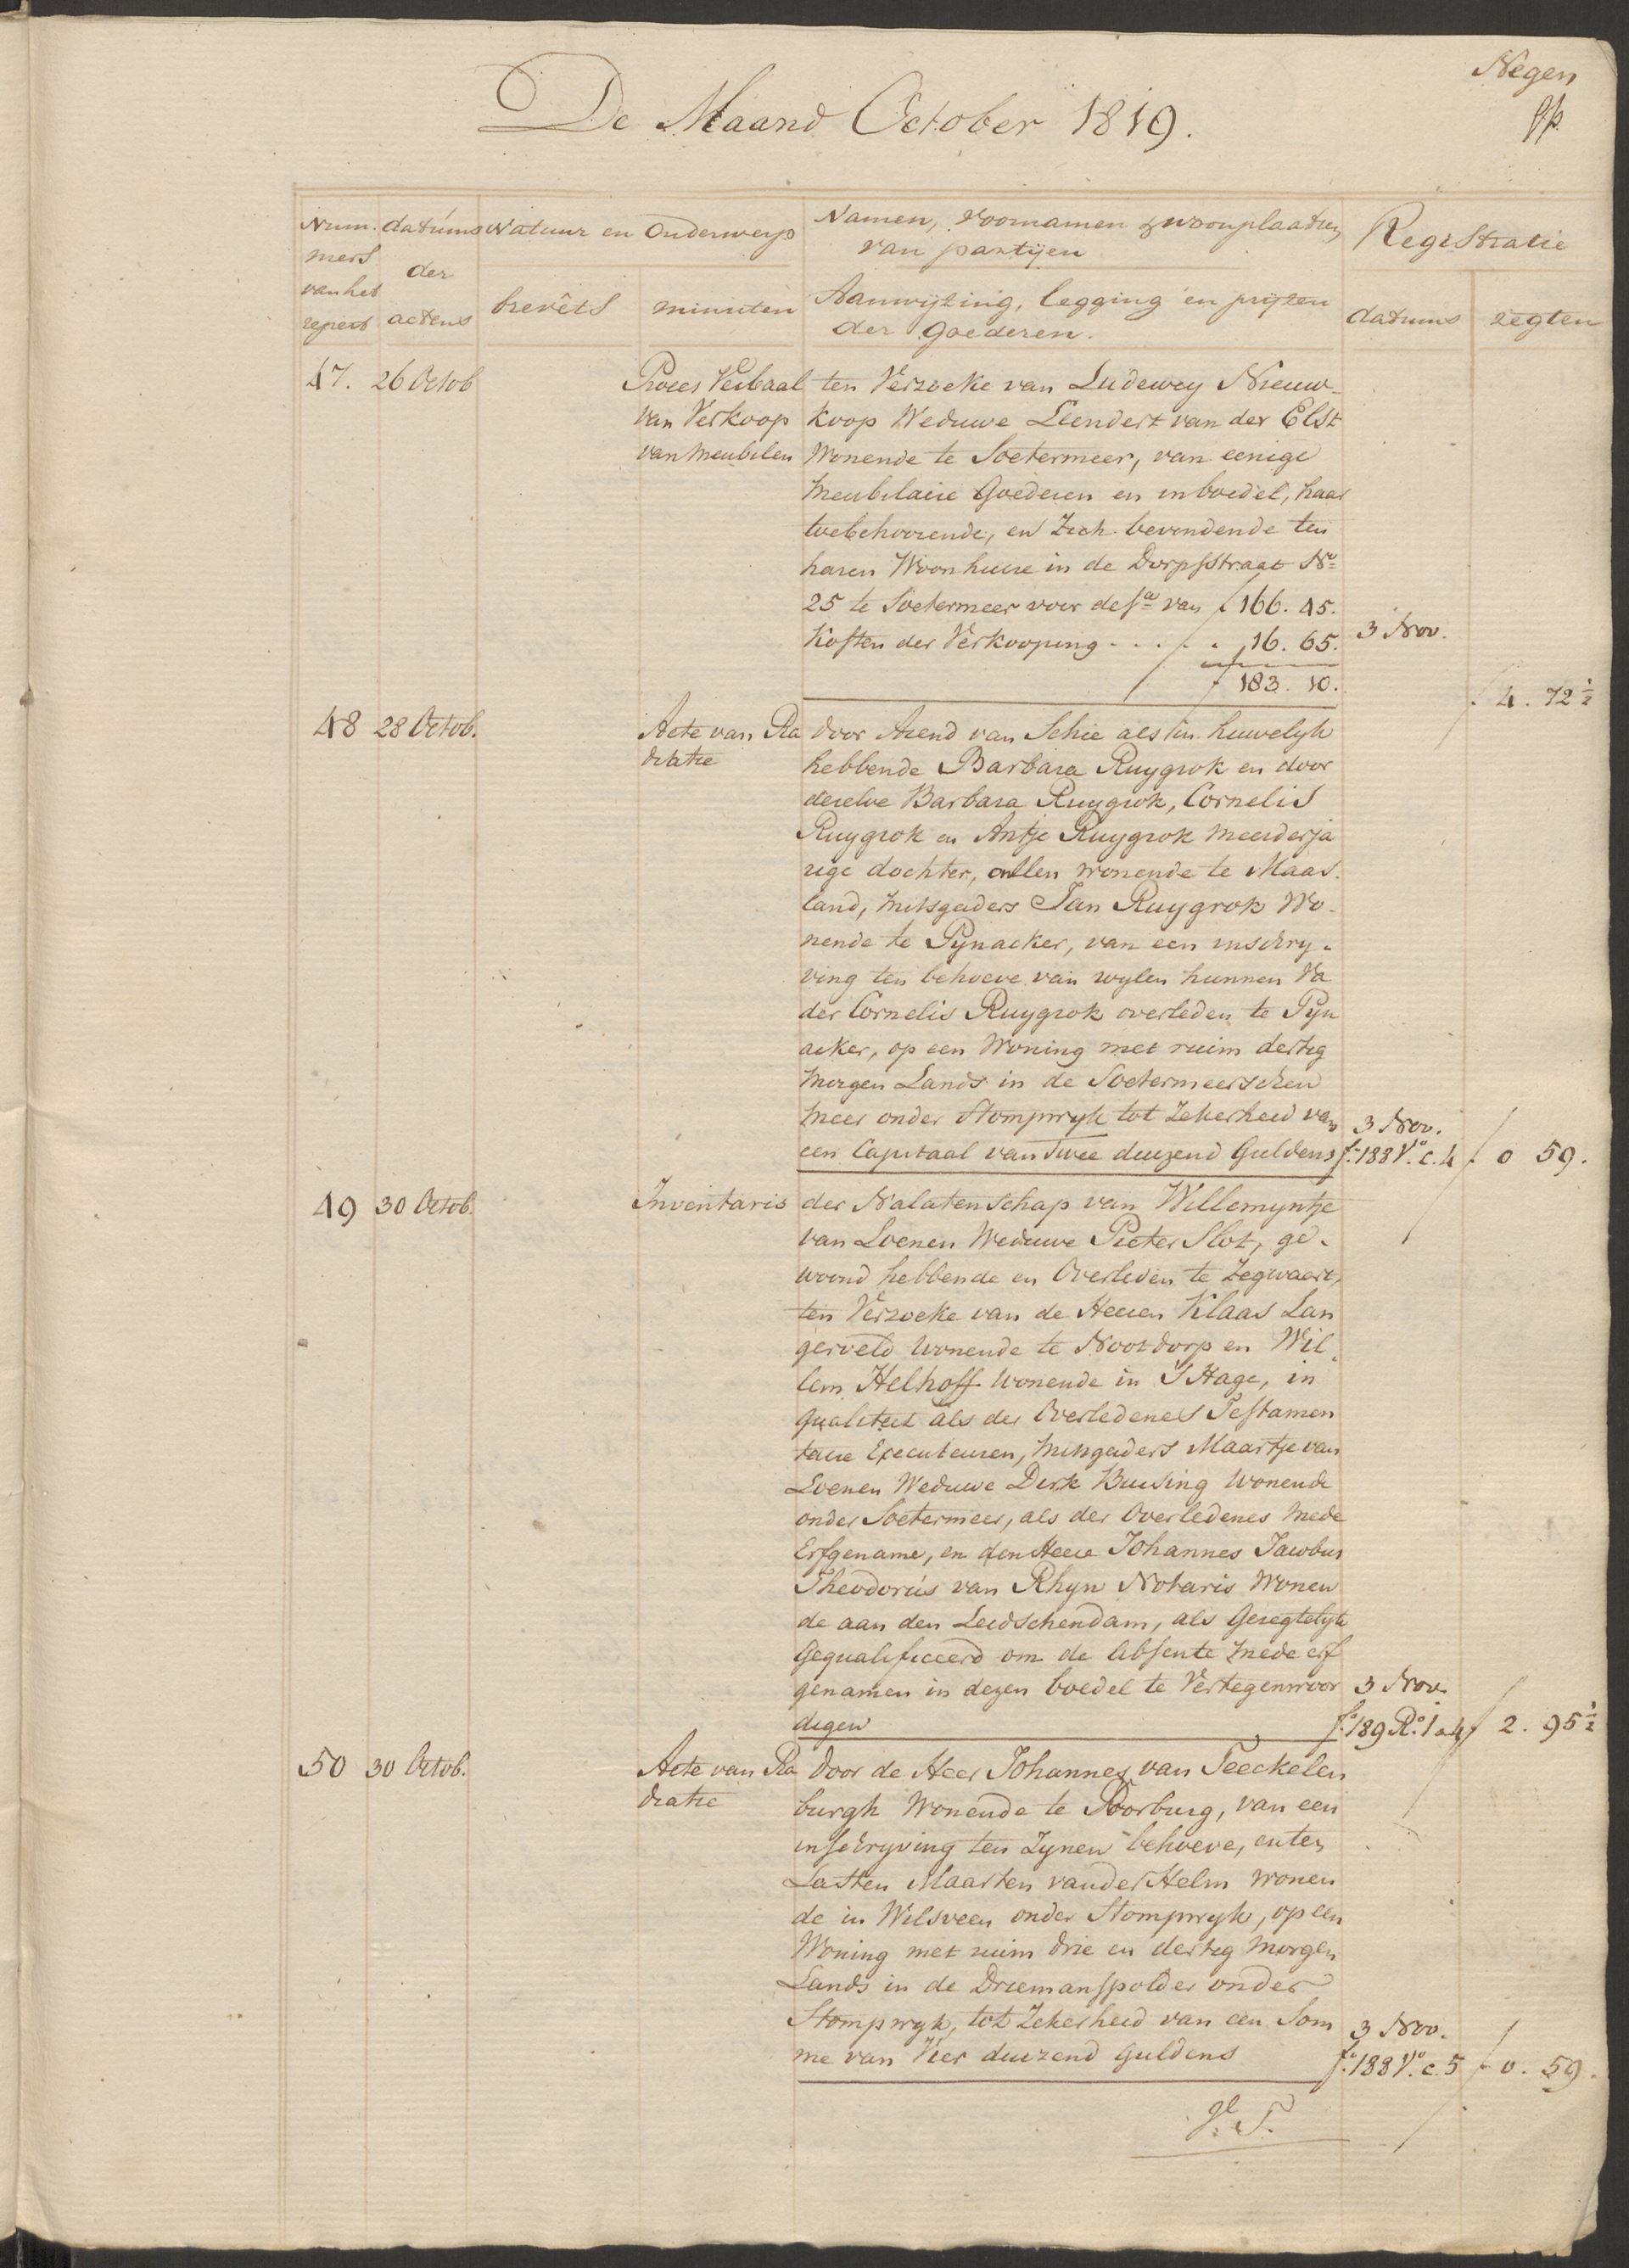 Negen
De Maand October 1819.
Num- datums Natuur en Onderwerp Namen, voornamen & woonplaatsen Registratie
mers der van partijen
van het
repert actens brevêts minuten Aanwijzing, legging en prijzen datums regten
der goederen.
47. 26 Octob Proces Verbaal ten Verzoeke van Ludewey Nieuw-
van Verkoop koop Weduwe Leendert van der Elst
van Meubilen Wonende te Soetermeer, van eenige
Meubilaire Goederen en inboedel, haar
toebehoorende, en Zich bevindende ten
haren Woonhuise in de Dorpsstraat No
25 te Soetermeer voor de sa van f 166. 45.
Kosten der Verkooping - . . . . 16. 65. 3 Nov.
f 183. 10. f 4. 72 1/2
48 28 Octob. Acte van Ra door Arend van Schie als in huwelyk
diatie hebbende Barbara Ruygrok en door
deselve Barbara Ruygrok, Cornelis
Ruygrok en Antje Ruygrok meerderja
rige dochter, allen wonende te Maas-
land, mitsgaders Jan Ruygrok Wo-
nende te Pynacker, van een inschry-
ving ten behoeve van wylen hunnen Va
der Cornelis Ruygrok overleden te Pyn
acker, op een Woning met ruim dertig
Morgen Lands in de Soetermeerschen
meer onder Stompwyk tot Zekerheid van 3 Nov.
een Capitaal van Twee duizend Guldens fo 188 Vo. c. 4 f 0 59.
49 30 Octob. Inventaris der Nalatenschap van Willemyntje
van Loenen Weduwe Pieter Slot, ge-
woond hebbende en Overleden te Zegwaert,
ten Verzoeke van de Heeren Klaas Lan
gerveld wonende te Nootdorp en Wil-
lem Helhoff wonende in S Hage, in
qualiteit als der Overledenes Testamen
taire Executeuren, mitsgaders Maartje van
Loenen Weduwe Dirk Buising Wonende
onder Soetermeer, als der Overledenes mede
Erfgename, en den Heere Johannes Jacobus
Theodorus van Rhyn Notaris Wonen
de aan den Leidschendam, als Geregtelyk
Gequalificeerd om de Absente mede erf
genamen in dezen boedel te Vertegenwoor 3 Nov.
digen fo 189 Ro. 1 a 4 f 2. 95 1/2
50 30 Octob. Acte van Ra door de Heer Johannes van Teeckelen
diatie burgh Wonende te Voorburg, van een
inschryving ten Zynen behoeve, en ten
Lasten Maarten van der Helm wonen
de in Wilsveen onder Stompwyk, op een
Woning met ruim drie en dertig Morgen
Lands in de Driemanspolder onder
Stompwyk, tot Zekerheid van een Som 3 Nov.
me van Vier duizend Guldens fo 188 Vo. c. 5 f 0. 59.